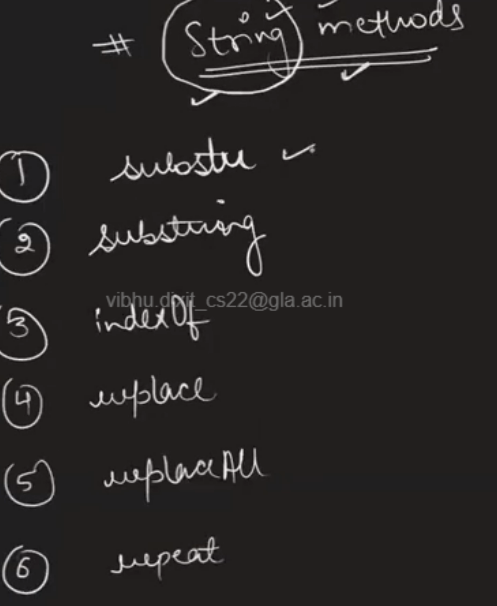 # String methods
① substr
② substring
vibhu.dixit_cs22@gla.ac.in
③ indexOf
④ replace
⑤ replaceAll
⑥ repeat